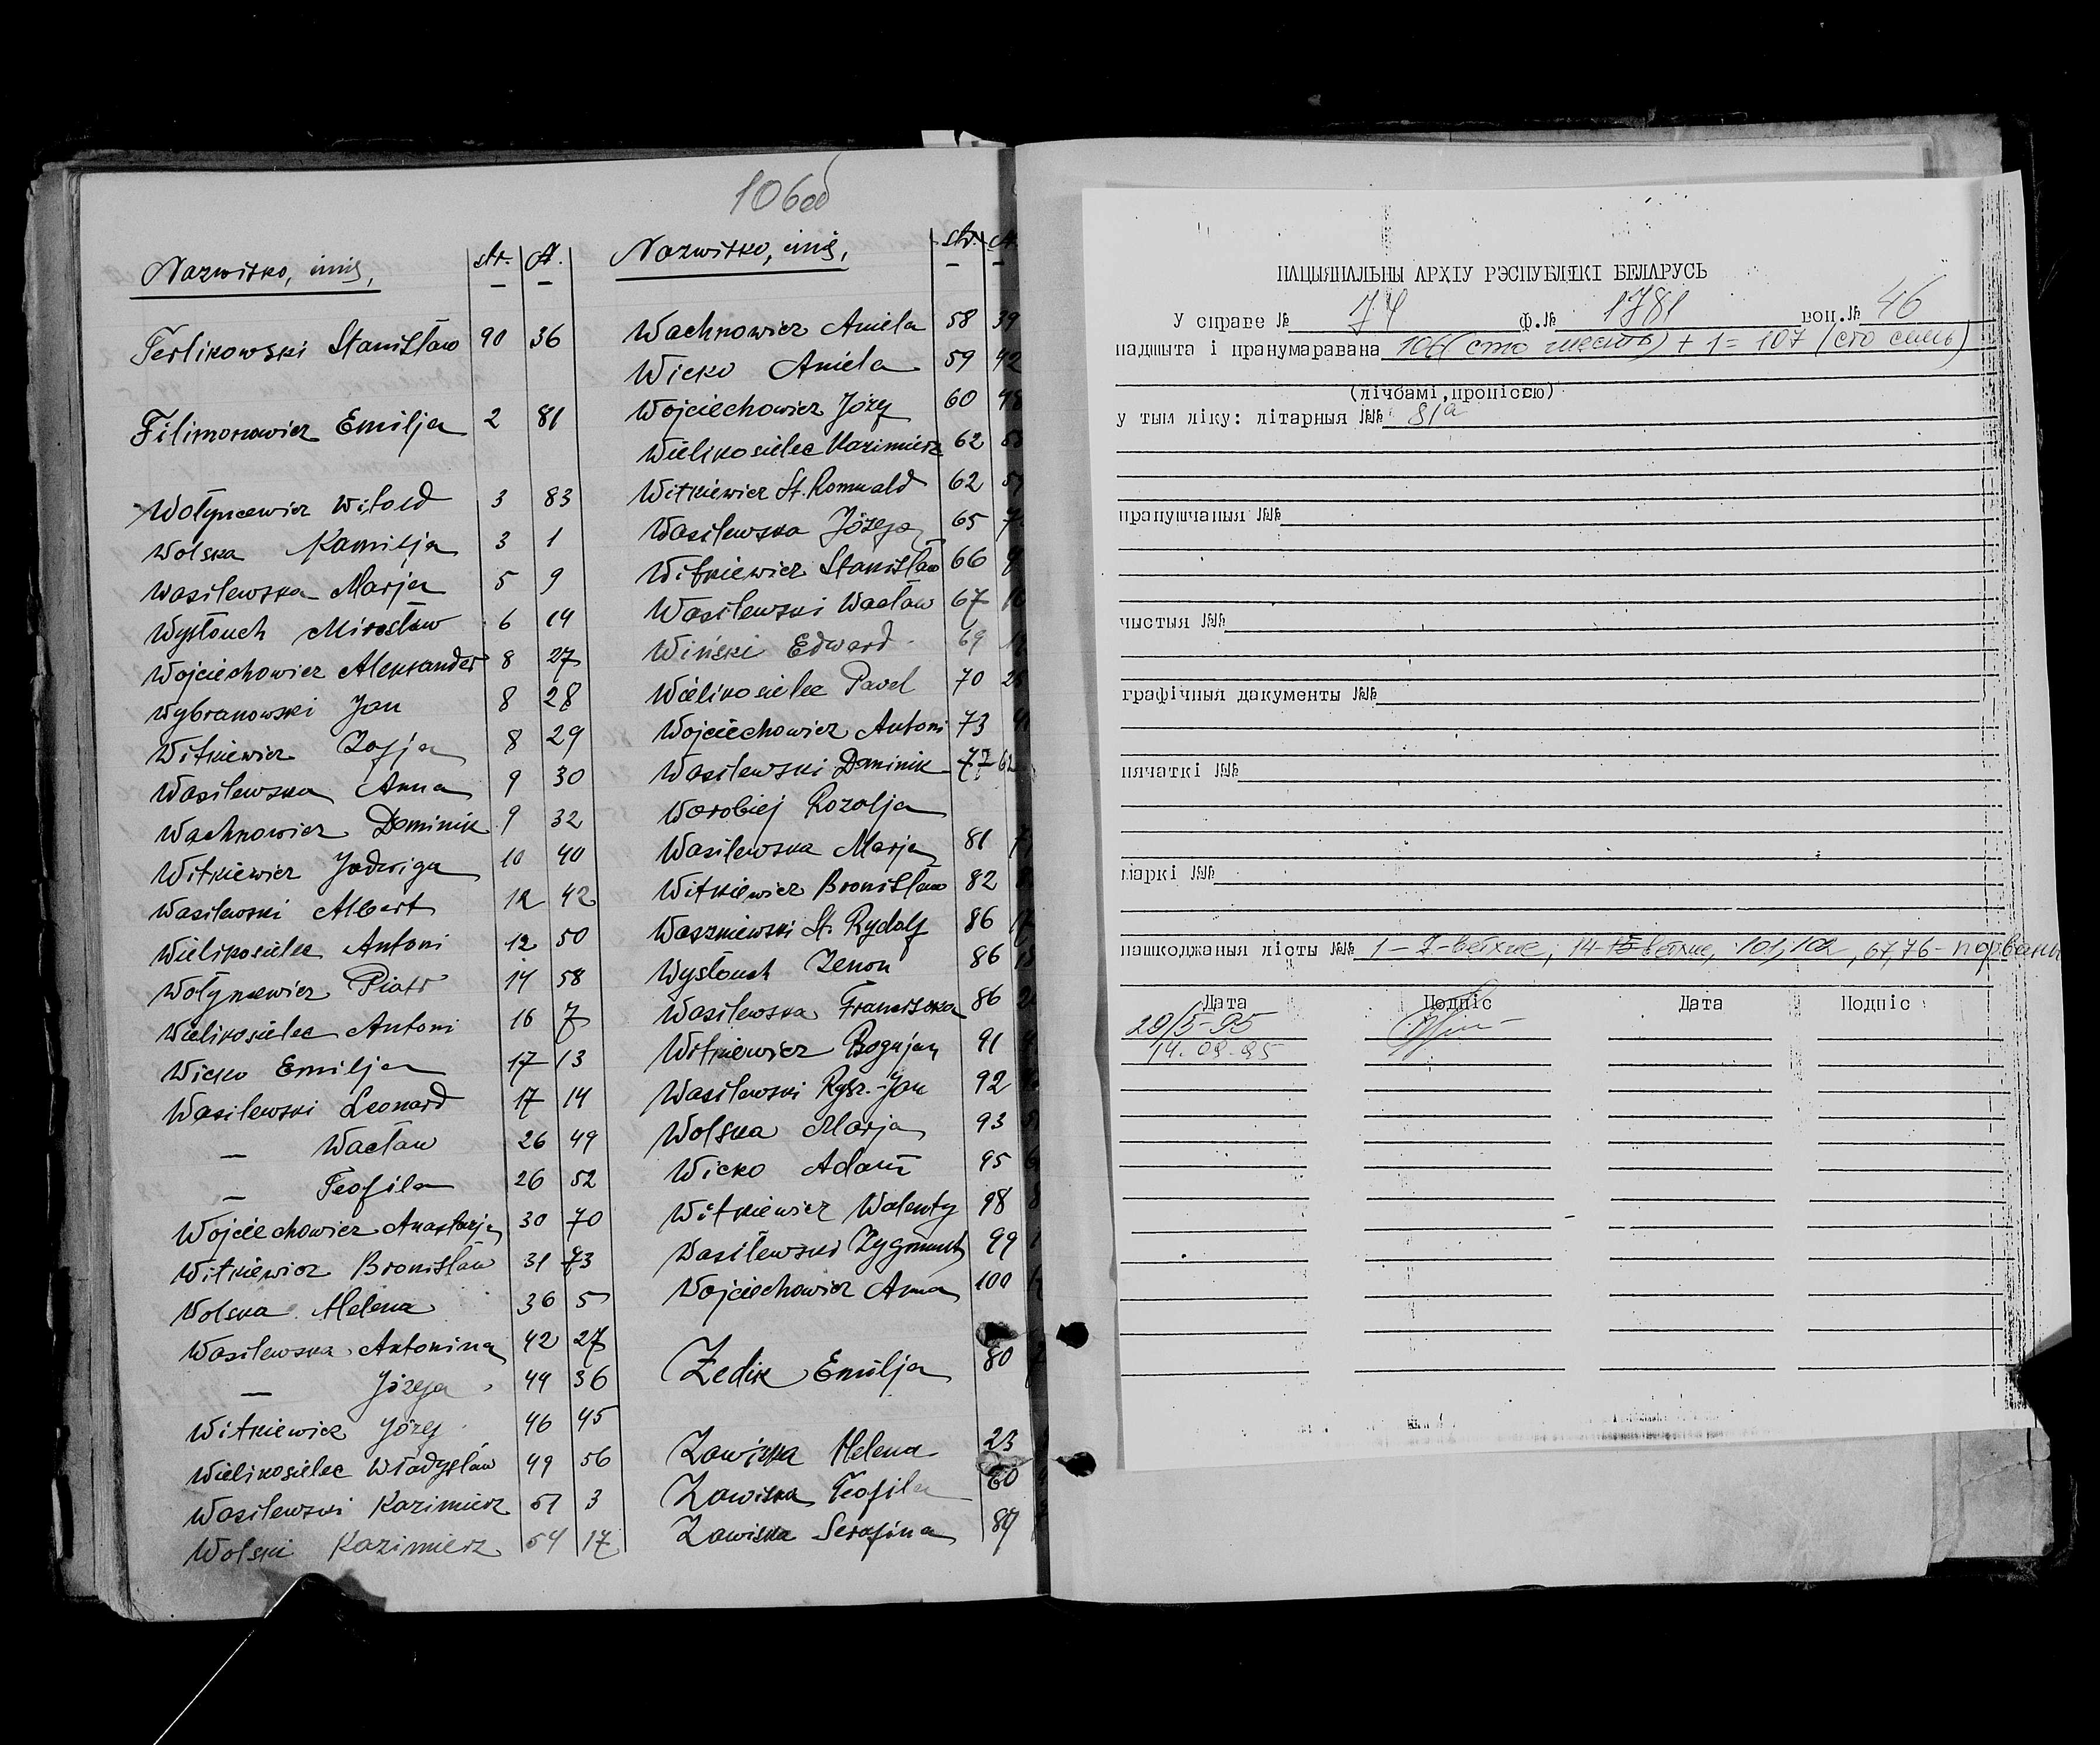 106об
Nazwisko, imię, str. A.
Terlikowski Stanisław 90 36
Filimonowicz Emilja 2 81
Wołyncewicz Witold 3 83
Wolska Kamilja 3 1
Wasilewska Marja 5 9
Wysłouch Mirosław 6 14
Wojciechowicz Aleksander 8 27
Wybranowski Jan 8 28
Witkiewicz Zofja 8 29
Wasilewska Anna 9 30
Wachnowicz Dominik 9 32
Witkiewicz Jadwiga 10 40
Wasilewski Albert 12 42
Wielikosielec Antoni 12 50
Wołyncewicz Piotr 14 58
Wielikosielec Antoni 16 7
Wicko Emilja 17 13
Wasilewski Leonard 17 14
— Wacław 26 49
— Teofila 26 52
Wojciechowicz Anastazja 30 70
Witkiewicz Bronisław 31 73
Wolska Helena 36 5
Wasilewska Antonina 42 27
— Józefa 44 36
Witkiewicz Józef 46 45
Wielikosielec Władysław 49 56
Wasilewski Kazimierz 51 3
Wolski Kazimierz 54 17
Nazwisko, imię, str. A.
Wachnowicz Aniela 58 39
Wicko Aniela 59 42
Wojciechowicz Józef 60 48
Wielikosielec Kazimierz 62
Witkiewicz St. Romuald 62
Wasilewska Józefa 65
Witkiewicz Stanisław 66
Wasilewski Wacław 67
Wiński Edward 69
Wielikosielec Pavel 70
Wojciechowicz Antoni 73
Wasilewski Dominik 77 62
Worobiej Rozalja
Wasilewska Marja 81
Witkiewicz Bronisław 82
Waszniewski St. Rydolf 86
Wysłouch Zenon 86
Wasilewska Franciszka 86
Witkiewicz Bogujan 91
Wasilewski Rysz.-Jan 92
Wolska Marja 93
Wicko Adam 95
Witkiewicz Walenty 98
Wasilewski Zygmunt 99
Wojciechowicz Anna 100
Zedik Emilja 80
Zawiska Helena 23
Zawiska Teofila 60
Zawiska Serafina 87
НАЦЫЯНАЛЬНЫ АРХІУ РЭСПУБЛІКІ БЕЛАРУСЬ
У справе № 74 ф.№ 1781 воп.№ 46
падшыта і пранумаравана 106 (сто шесть) + 1 = 107 (сто семь)
(лічбамі, пропіссю)
у тым ліку: літарныя №№ 81а
прапушчаныя №№
чыстыя №№
графічныя дакументы №№
пячаткі №№
маркі №№
пашкоджаныя лісты №№ 1-7-ветхие, 14-15 ветхие, 101,102, 67,76 - порваны
Дата Подпіс Дата Подпіс
29/5-95
14.09.95